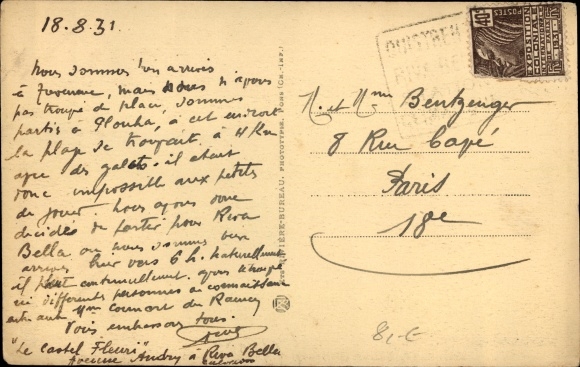 18.8.31
Nous sommes bien arrivés
à mais nous n'ayons
pas trouvé de place, sommes
partis à Plouha, à cet endroit
la plage se trouvait à 4 Km
avec des galets. il était
donc impossible aux petits
de jouer. nous avons donc
décidés de partir pour Riva
Bella où nous sommes bien
arrivés hier vers 6 h. Naturellement
il pleut continuellement. avons retrouvé
ici différentes personnes de connaissance
entre autre Mme du Raincy
Vous embrasse tous.
"Le Castel Fleuri"
Avenue Andry à Riva Bella
Calvados
RIVIÈRE-BUREAU, PHOTOTYPES, PONS (CH.-INF.)
OUISTREHAM
RIVA BELLA
POSTES
40c
EXPOSITION
COLONIALE
INTERNATIONALE
PARIS 1931
M. et Mme Bentzinger
8 Rue Capé
Paris
18e
8,-€